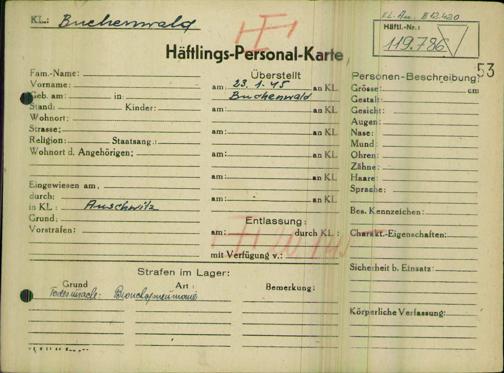 KL.: Buchenwald
Häftlings-Personal-Karte
Häftl.-Nr.:
119.786
53
Fam.-Name:
Vorname:
Geb. am: in:
Stand: Kinder:
Wohnort:
Strasse:
Religion: Staatsang.:
Wohnort d. Angehörigen:
Eingewiesen am:
durch:
in KL.: Auschwitz
Grund:
Vorstrafen:
Überstellt
am: 23.1.45 an KL.
Buchenwald
am: an KL.
am: an KL.
am: an KL.
am: an KL.
am: an KL.
Entlassung:
am: durch KL.:
mit Verfügung v.:
Personen-Beschreibung:
Grösse: cm
Gestalt:
Gesicht:
Augen:
Nase:
Mund:
Ohren:
Zähne:
Haare:
Sprache:
Bes. Kennzeichen:
Charakt.-Eigenschaften:
Sicherheit b. Einsatz:
Körperliche Verfassung:
Strafen im Lager:
Grund Art: Bemerkung:
Todesursache: Bronchopneumonie